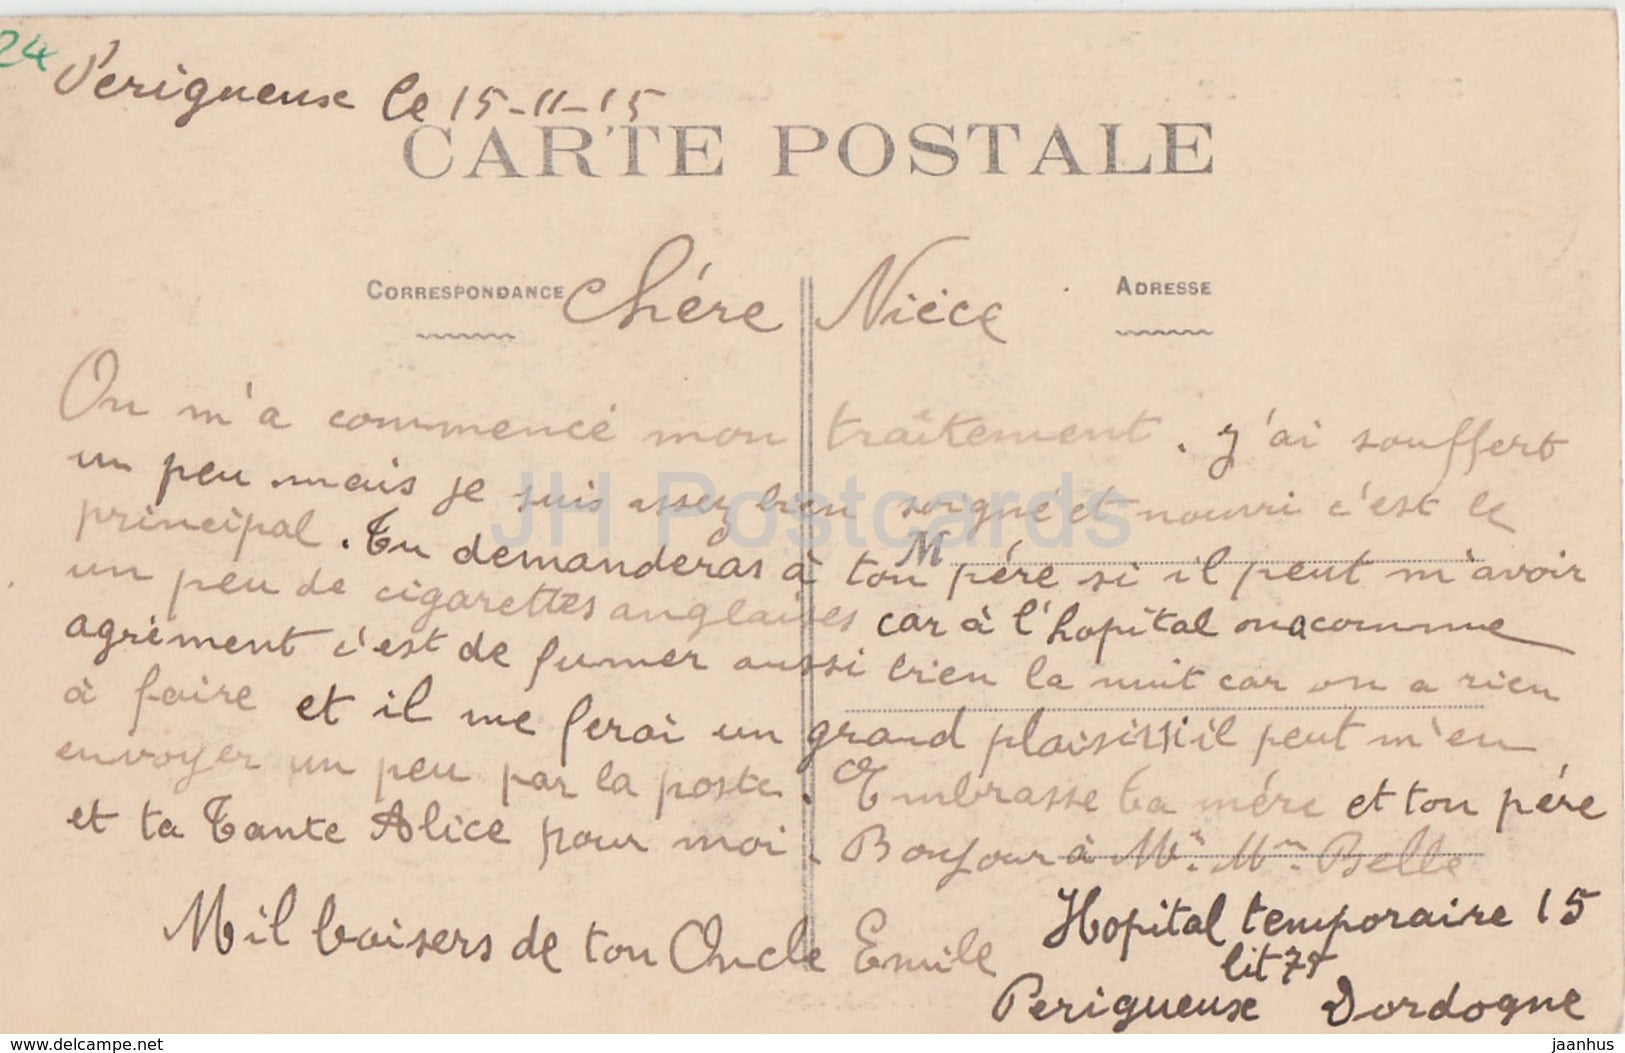 24
Perigueuse le 15-11-15
CARTE POSTALE
CORRESPONDANCE
ADRESSE
Chére Niéce
On m'a commencé mon traîtement. j'ai souffert
un peu mais je suis assez bien soigné et nourri c'est le
principal. Tu demanderas à ton pére si il peut m'avoir
un peu de cigarettes anglaises car à l'hopital on a comme
agrément c'est de fumer aussi bien la nuit car on a rien
à faire et il me ferai un grand plaisir si il peut m'en
envoyer un peu par la poste. Embrasse ta mére et ton pére
et ta Tante Alice pour moi. Bonjour à Mr. Mme. Belle
Mil baisers de ton Oncle Emile
Hopital temporaire 15
lit
Perigueuse Dordogne
M
JH Postcards
www.delcampe.net
jaanhus